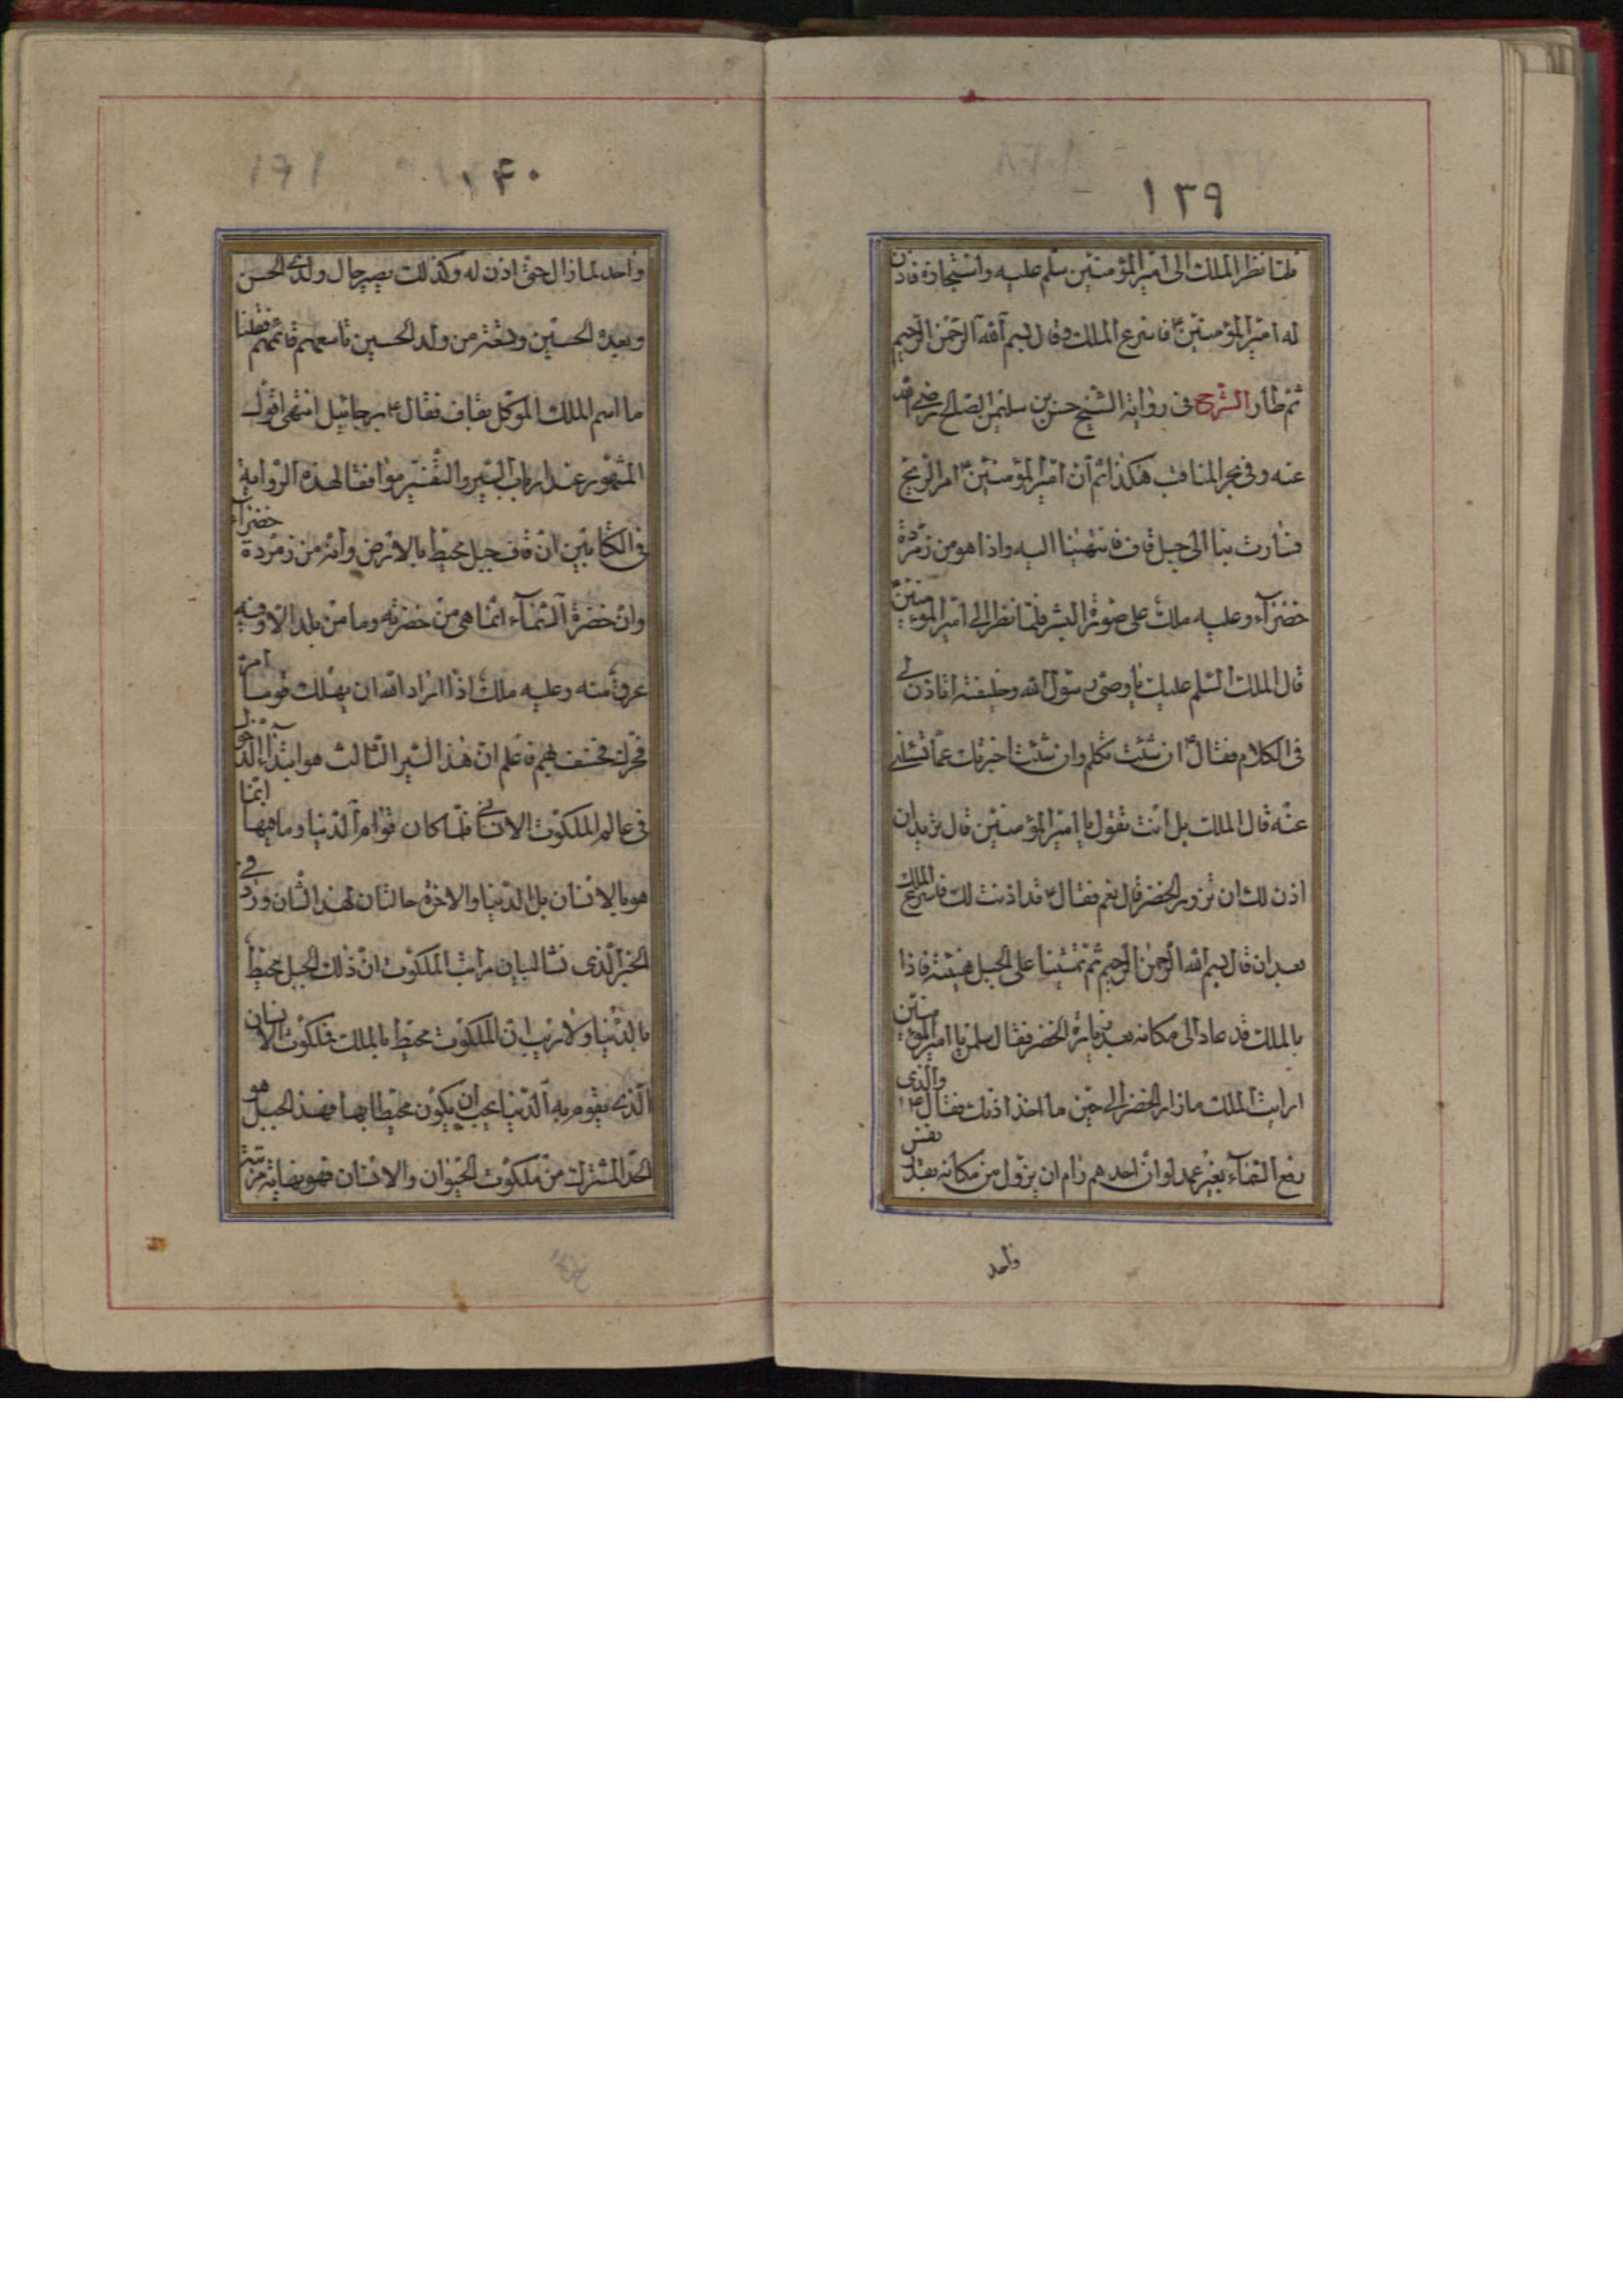 ١٣٩
فلما نظر الملك الى امير المؤمنين سلم عليه واستجازه فاذن
له امير المؤمنين ع فاسرع الملك وقال بسم الله الرحمن الرحيم
ثم طار الشرح فى رواية الشيخ حسن بن سليمن الصلحى رضى الله
عنه وفى بحر المناقب هكذا ثم ان امير المؤمنين ع امر الريح
فسارت بنا الى جبل قاف فانتهينا اليه واذا هو من زمردة
خضراء وعليه ملك على صورة البشر فلما نظر الى امير المؤمنين
قال الملك السلم عليك يا وصى رسول الله وخليفته اتاذن لى
فى الكلام فقال ع ان شئت تكلم وان شئت اخبرتك عما تسئلنى
عنه قال الملك بل انت تقول يا امير المؤمنين قال تريد ان
اذن لك ان تزور الخضر قال نعم فقال ع قد اذنت لك فاسرع الملك
بعد ان قال بسم الله الرحمن الرحيم ثم تمشينا على الجبل هنيئة فاذا
بالملك قد عاد الى مكانه بعد زيارة الخضر فقال سلمن يا امير المؤمنين
ارايت الملك ما زار الخضر الا حين ما اخذ اذنك فقال ع والذى
رفع السماء بغير عمد لو ان احدهم رام ان يزول من مكانه بقدر نفس
واحد
١٤٠
واحد لما زال حتى اذن له وكذلك يصير حال ولدى الحسن
وبعده الحسين وتسعة من ولد الحسين تاسعهم قائمهم فقلنا
ما اسم الملك الموكل بقاف فقال ع برجائيل انتهى اقول
المشهور عند ارباب السير والتفسير موافقا لهذه الرواية
فى الكتابين ان قاف جبل محيط بالارض وانه من زمردة خضراء
وان خضرة السماء انما هى من خضرته وما من بلد الا وفيه
عرق منه وعليه ملك اذا اراد الله ان يهلك قوما امره
فحرك فخسف بهم فاعلم ان هذا السير الثالث هو ابتداء الدخول
فى عالم الملكوت الانسانى فلما كان قوام الدنيا وما فيها انما
هو بالانسان بل الدنيا والاخرة حالتان لهذا الشان ورد فى
الخبر الذى نسا لبيان مراتب الملكوت ان ذلك الجبل محيط
بالدنيا ولا ريب ان الملكوت محيط بالملك فملكوت الانسان
الذى يقوم به الدنيا يجب ان يكون محيطا بها فهذا الجبل هو
الحد المشترك من ملكوت الحيوان والانسان فهو نهاية مرتبة